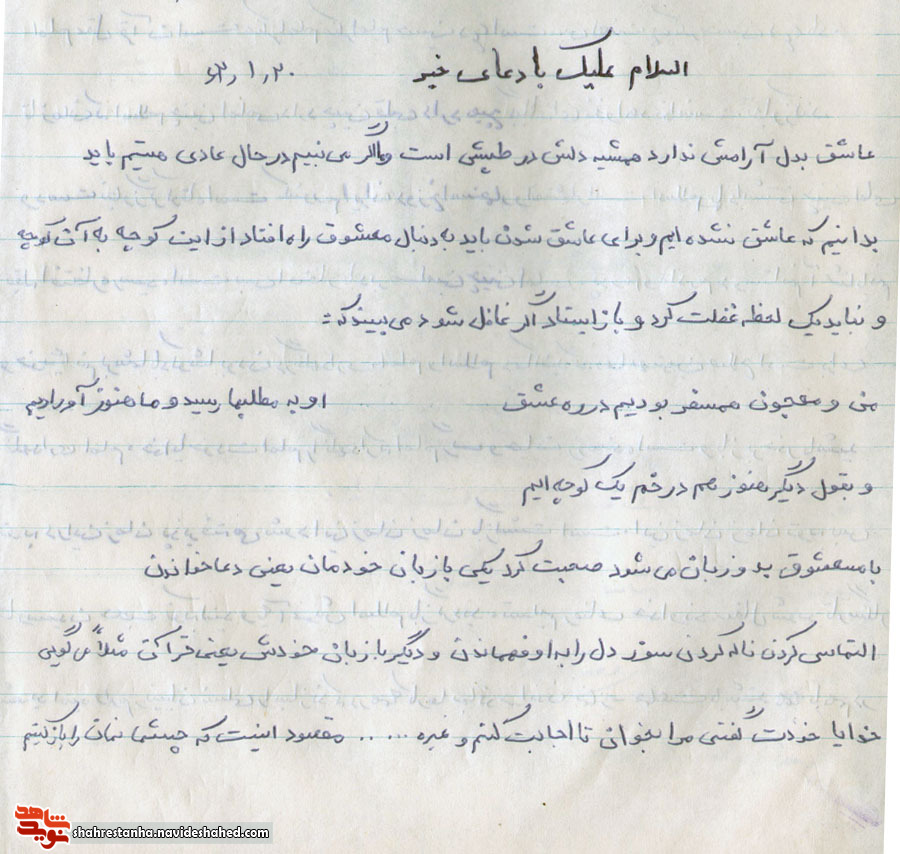 السلام علیک با دعای خیر ۶۳٫۱٫۲۰
عاشق بدل آرامش ندارد همشیه دلش در طپش است و اگر می بنیم در حال عادی هستیم باید
بدانیم که عاشق نشده ایم و برای عاشق شدن باید به دنبال معشوق راه افتاد از این کوچه به آن کوچه
و نباید یک لحظه غفلت کرد و باز ایستاد اگر غافل شود می بیند که:
من و مجنون همسفر بودیم در ره عشق او به مطلبها رسید و ما هنوز آوراه ایم
و بقول دیگر هنوز هم در خم یک کوچه ایم
با معشوق بدو زبان می شود صحبت کرد یکی با زبان خودمان یعنی دعا خواندن
التماس کردن ناله کردن سوز دل را به او فهماندن و دیگر با زبان خودش یعنی قرآن مثلاً می گویی
خدایا خودت گفتی مرا بخوانی تا اجابت کنم و غیره ..... مقصود اینست که چشمانمان را باز کنیم
شاهد
نوید
shahrestanha.navideshahed.com